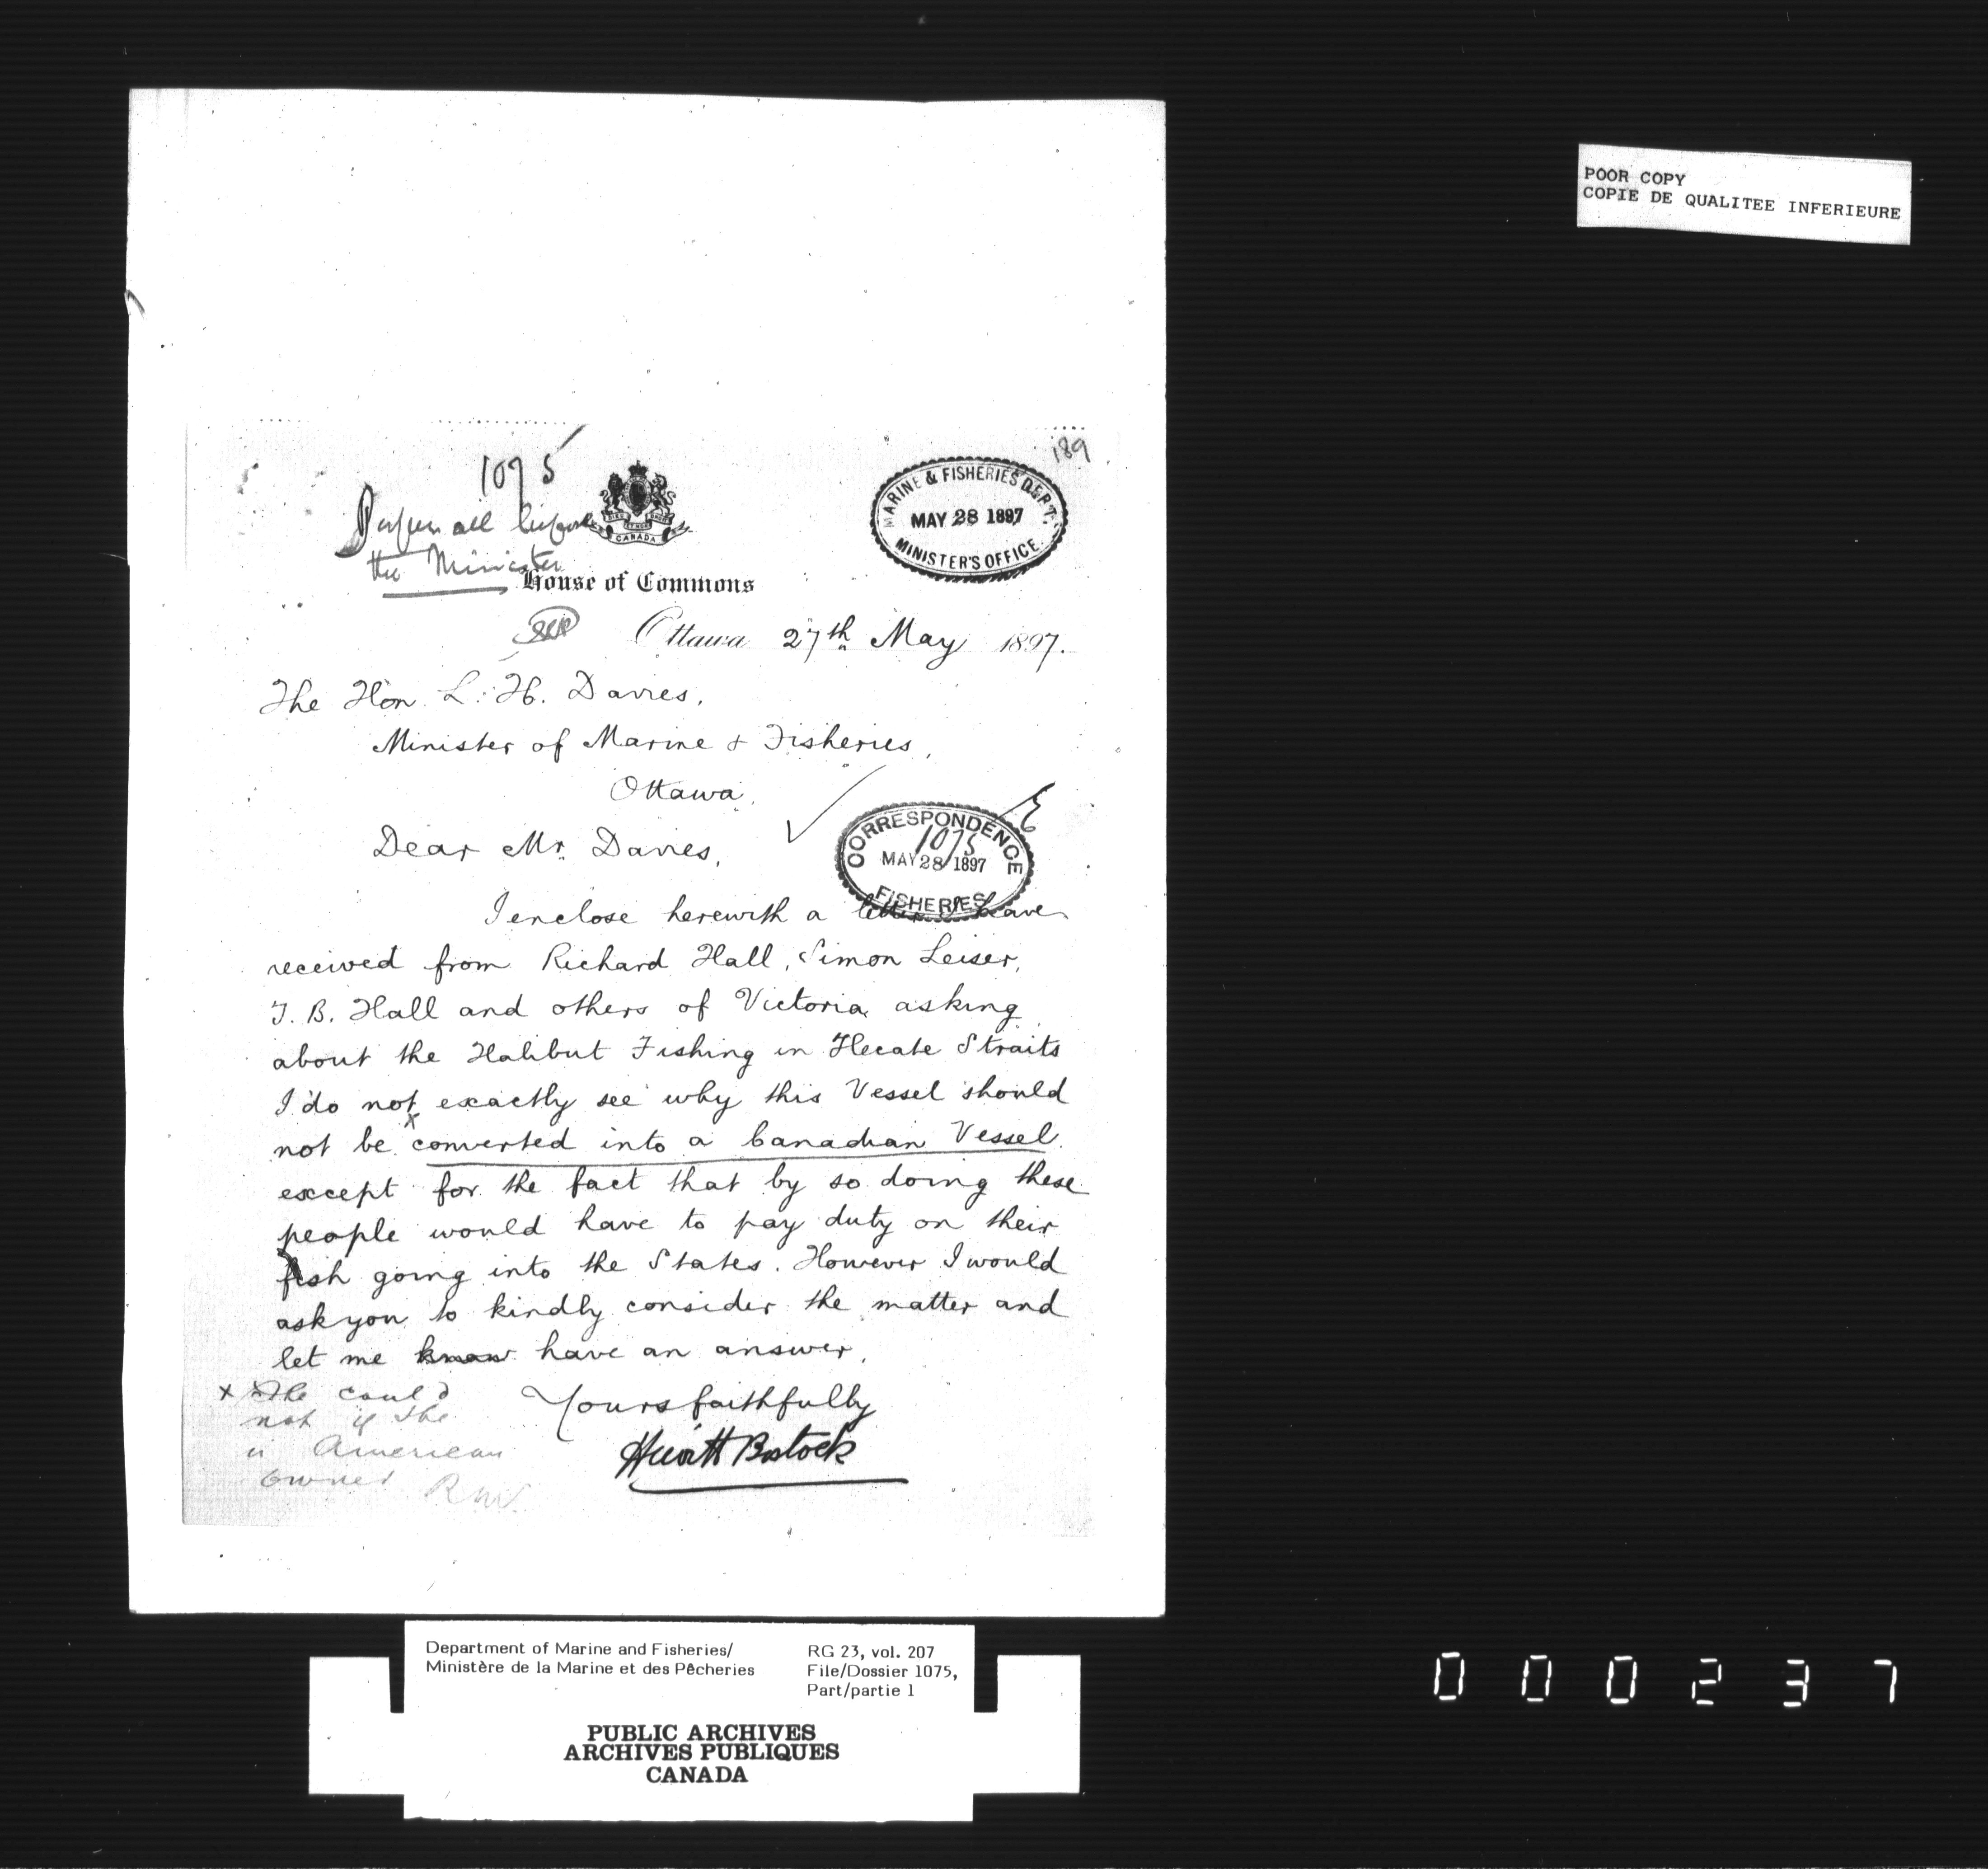 POOR COPY
COPIE DE QUALITEE INFERIEURE
189
1075
Papers all before
the Minister
CANADA
House of Commons
MARINE & FISHERIES DEPT.
MAY 28 1897
MINISTER'S OFFICE
Ottawa 27th May 1897.
The Hon. L. H. Davies,
Minister of Marine & Fisheries,
Ottawa.
Dear Mr. Davies,
CORRESPONDENCE
1075
MAY 28 1897
FISHERIES
I enclose herewith a letter I have
received from Richard Hall, Simon Leiser,
T. B. Hall and others of Victoria asking
about the Halibut Fishing in Hecate Straits
I do not exactly see why this Vessel should
not be x converted into a Canadian Vessel.
except for the fact that by so doing these
people would have to pay duty on their
fish going into the States. However I would
ask you to kindly consider the matter and
let me know have an answer.
Yours faithfully
Hewitt Bostock
x She could
not if she
is American
owned
Department of Marine and Fisheries/
Ministère de la Marine et des Pêcheries
RG 23, vol. 207
File/Dossier 1075,
Part/partie 1
PUBLIC ARCHIVES
ARCHIVES PUBLIQUES
CANADA
000237